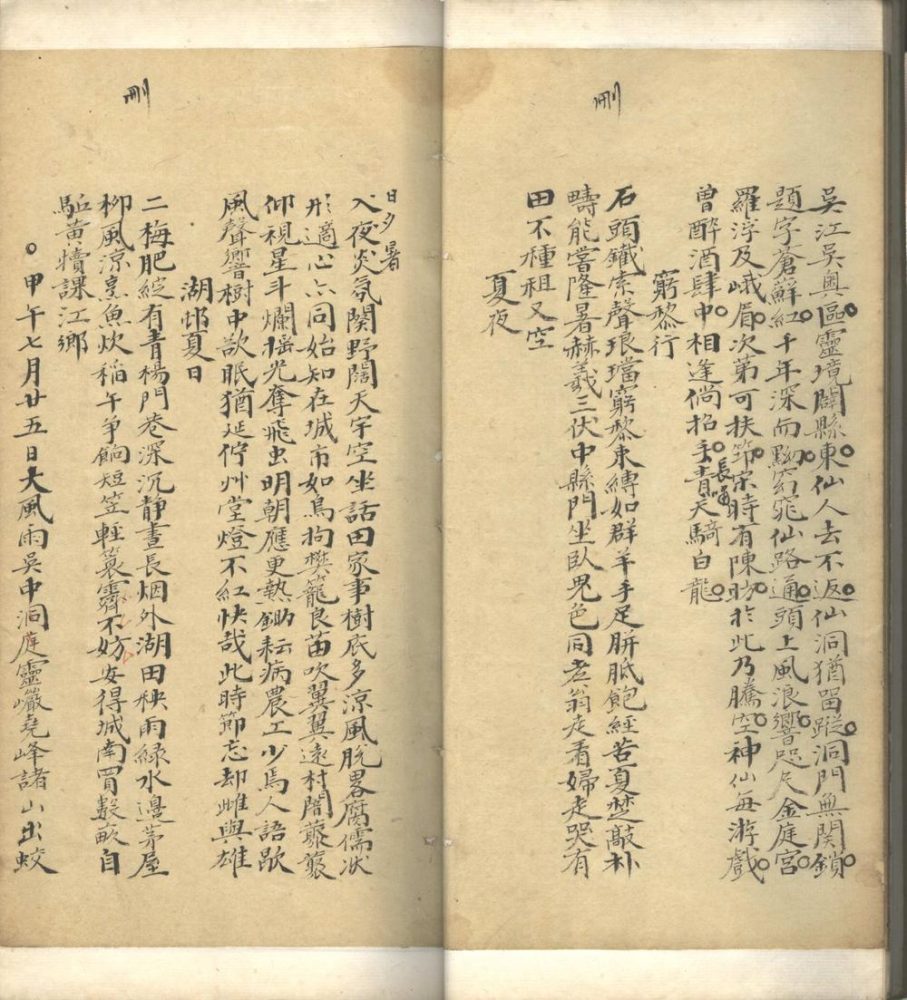 刪
吳江吳奧區靈境闢縣東仙人去不返仙洞猶留蹤洞門無関鎖
題字蒼蘚紅千年深而黝窈窕仙路通頭上風浪響咫尺金庭宮
羅浮及峨眉次第可扶筇宋時有陳昉於此乃騰空神仙每游戲
曾醉酒肆中相逢倘招手長嘯青天騎白龍
窮黎行
石頭鐵索聲琅璫窮黎束縛如群羊手足胼胝飽經苦夏楚敲朴
疇能當隆暑赫羲三伏中縣門坐臥鬼色同老翁走看婦走哭有
田不種租又空
夏夜
刪
日夕暑
入夜炎氛闋野闊天宇空坐話田家事樹底多涼風脫畧腐儒狀
形適心亦同始知在城市如鳥拘樊籠良苗吹翼翼遠村闇蒙蒙
仰視星斗爛搖光奪飛虫明朝應更熱鋤耘病農工少焉人語歇
風聲響樹中欲眠猶延佇艸堂燈不紅快哉此時節忘却雌與雄
湖邨夏日
二梅肥綻有青楊門巷深沉静晝長烟外湖田秧雨綠水邊茅屋
柳風涼烹魚炊稻午爭餉短笠輕簑霽不妨安得城南買數畝自
駈黃犢課江鄉
甲午七月廿五日大風雨吳中洞庭靈巖堯峰諸山出蛟